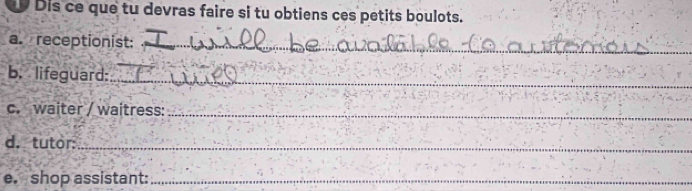 1 Dis ce que tu devras faire si tu obtiens ces petits boulots.
a. receptionist: I will be avalable to
b. lifeguard: I will
c. waiter / waitress:
d. tutor:
e. shop assistant: